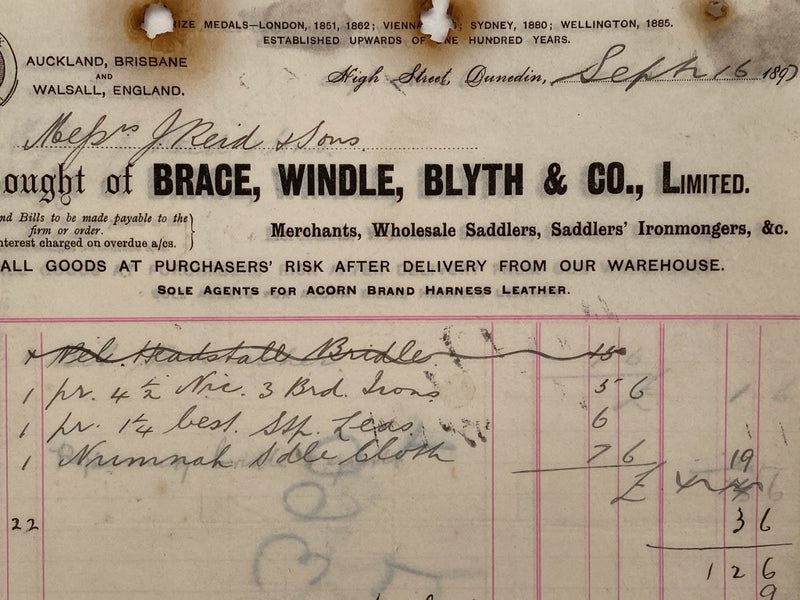 RIZE MEDALS—LONDON, 1851, 1862; VIENN ; SYDNEY, 1880; WELLINGTON, 1885.
ESTABLISHED UPWARDS OF ONE HUNDRED YEARS.
AUCKLAND, BRISBANE
AND
WALSALL, ENGLAND.
High Street, Dunedin, Sept 16 1897
Messrs J. Reid & Sons
ought of BRACE, WINDLE, BLYTH & CO., LIMITED.
nd Bills to be made payable to the
firm or order.
nterest charged on overdue a/cs.
Merchants, Wholesale Saddlers, Saddlers' Ironmongers, &c.
ALL GOODS AT PURCHASERS' RISK AFTER DELIVERY FROM OUR WAREHOUSE.
SOLE AGENTS FOR ACORN BRAND HARNESS LEATHER.
Headstall Bridle 15
1 pr. 4 1/2 Nic. 3 Brd. Irons 5 6
1 pr. 1 1/4 best. Stp. Leas 6
1 Numnah Sdle Cloth 7 6 19
£
22 3 6
1 2 6
9